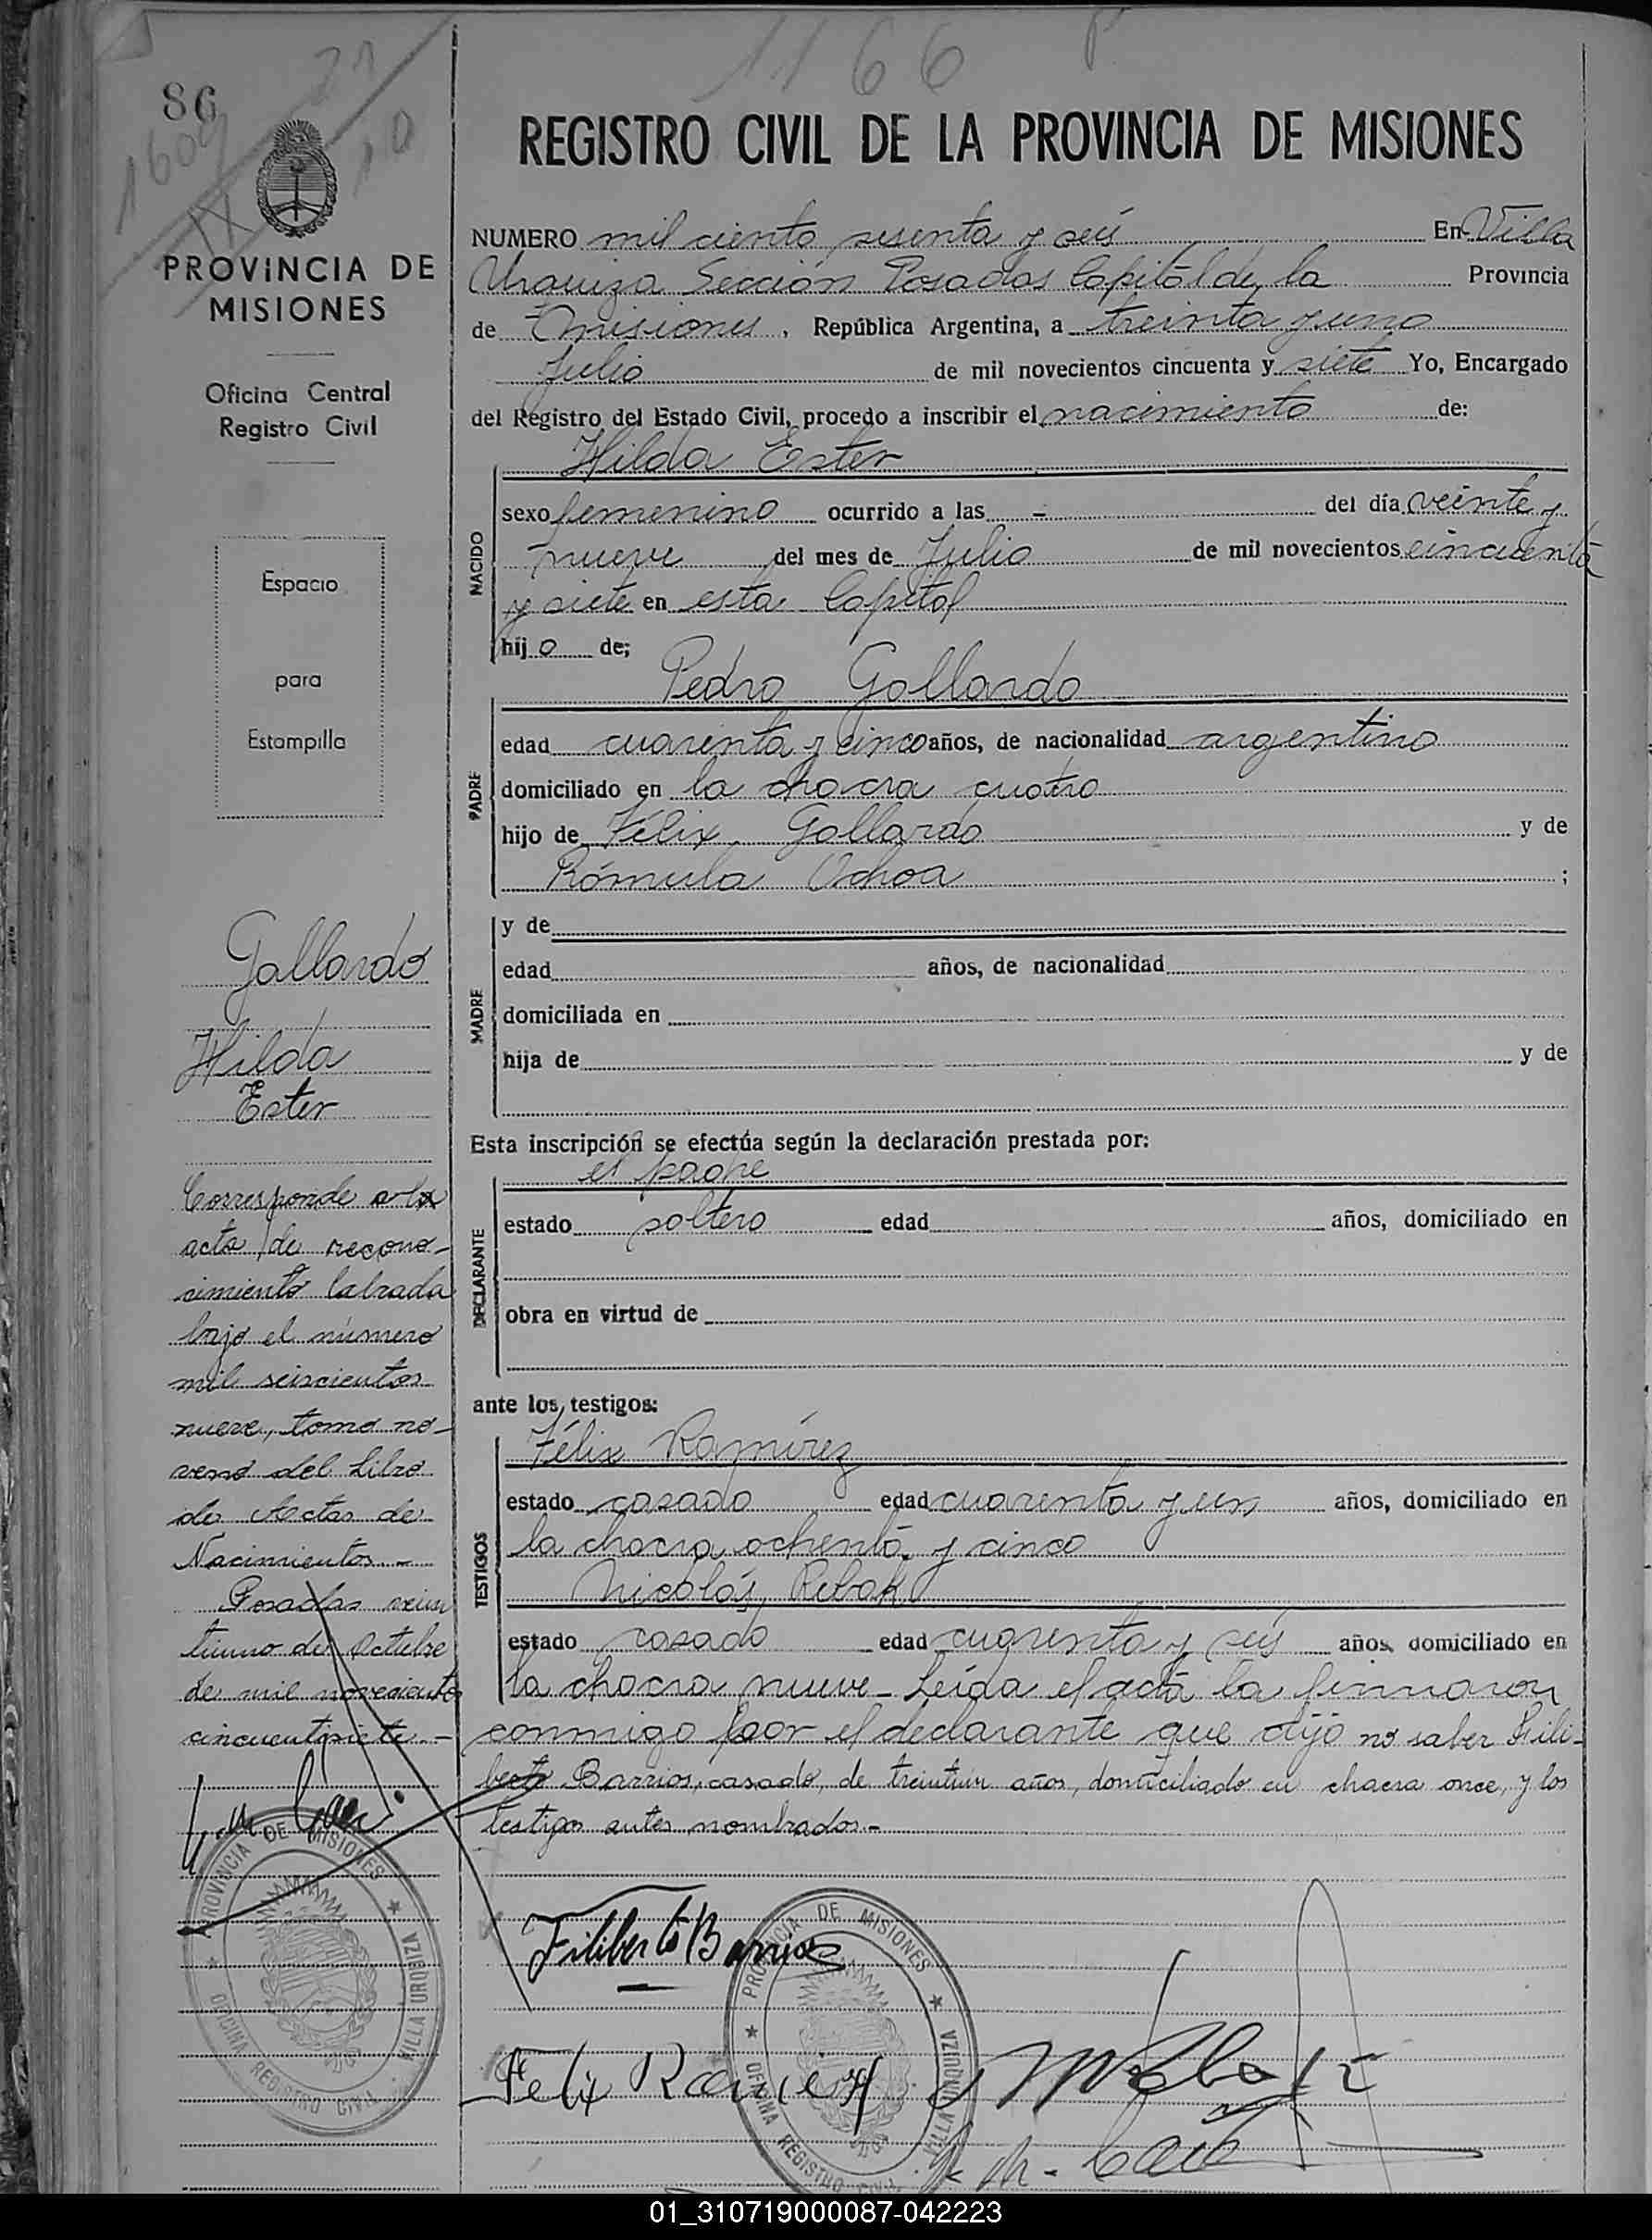 1166
86
21
10
1609
IX
PROVINCIA DE
MISIONES
Oficina Central
Registro Civil
Espacio
para
Estampilla
Gallardo
Hilda
Ester
Corresponde a la
acta de recono-
cimiento labrada
bajo el número
mil seiscientos
nueve, tomo no-
veno del Libro
de Actas de
Nacimientos.-
Posadas vein
tiuno de Octubre
de mil novecientos
cincuentisiete.-
PROVINCIA DE MISIONES
OFICINA REGISTRO CIVIL
VILLA URQUIZA
REGISTRO CIVIL DE LA PROVINCIA DE MISIONES
NUMERO mil ciento sesenta y seis En Villa
Urquiza Sección Posadas Capital de la Provincia
de Misiones, República Argentina, a treinta y uno
Julio de mil novecientos cincuenta y siete Yo, Encargado
del Registro del Estado Civil, procedo a inscribir el nacimiento de:
Hilda Ester
NACIDO
sexo femenino ocurrido a las - del día veinte y
nueve del mes de Julio de mil novecientos cincuenta
y siete en esta Capital
hij o de;
Pedro Gallardo
PADRE
edad cuarenta y cinco años, de nacionalidad argentino
domiciliado en la chacra cuatro
hijo de Félix Gallardo y de
Rómula Ochoa ;
MADRE
y de
edad años, de nacionalidad
domiciliada en
hija de y de
Esta inscripción se efectúa según la declaración prestada por:
el padre
DECLARANTE
estado soltero edad años, domiciliado en
obra en virtud de
ante los testigos:
Félix Ramírez
TESTIGOS
estado casado edad cuarenta y un años, domiciliado en
la chacra ochenta y cinco
Nicolás Rebak
estado casado edad cuarenta y seis años domiciliado en
la chacra nueve - Leída el acta la firmaron
conmigo por el declarante que dijo no saber Fili-
berto Barrios, casado, de treintiún años, domiciliado en chacra once, y los
testigos antes nombrados.-
Filiberto Barrios
PROVINCIA DE MISIONES
OFICINA REGISTRO CIVIL
VILLA URQUIZA
Felix Ramirez
01_310719000087-042223